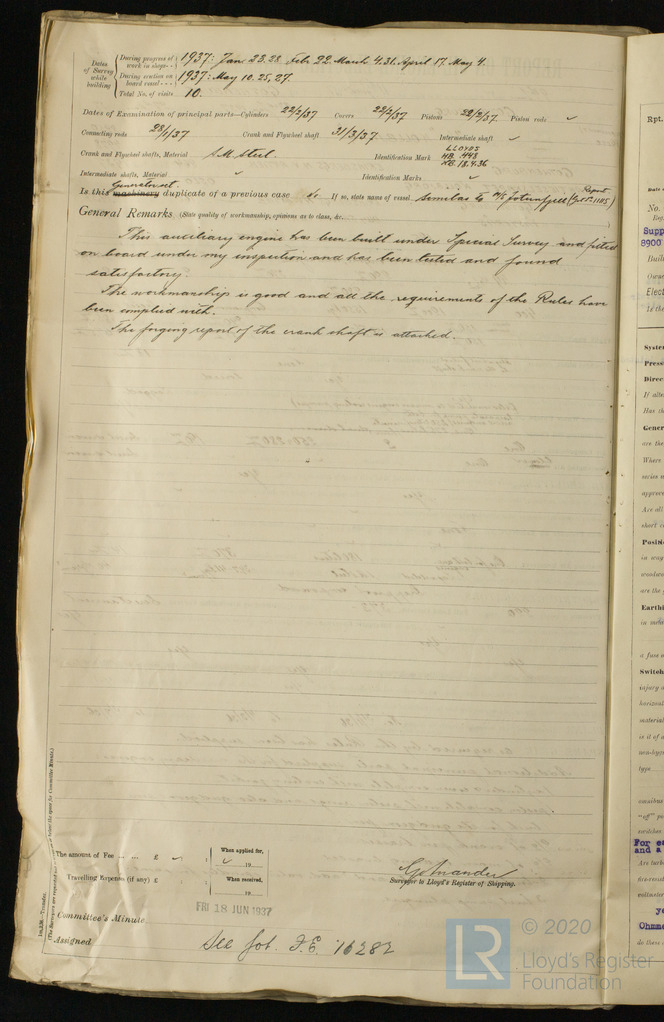 Dates of Survey while building
During progress of work in shops - - 1937: Jan 23. 28. Feb 22. March 4. 31. April 17. May 4.
During erection on board vessel - - - 1937: May 10. 25. 27.
Total No. of visits 10.
Dates of Examination of principal parts—Cylinders 22/2/37 Covers 22/2/37 Pistons 22/2/37 Piston rods ✓
Connecting rods 28/1/37 Crank and Flywheel shaft 31/3/37 Intermediate shaft ✓
Crank and Flywheel shafts, Material S.M. Steel. Identification Mark LLOYDS
Intermediate shafts, Material ✓ Identification Marks ✓
Is this machinery Generator set duplicate of a previous case If so, state name of vessel similar to M/S Jotunfjell (Report
General Remarks (State quality of workmanship, opinions as to class, &c.
This auxiliary engine has been built under Special Survey and fitted
on board under my inspection and has been tested and found
satisfactory.
The workmanship is good and all the requirements of the Rules have
been complied with.
The forging report of the crank shaft is attached.
The amount of Fee ... ... £ ✓ : When applied for, ✓ 19
Travelling Expenses (if any) £ : When received, 19
Surveyor to Lloyd's Register of Shipping.
FRI 18 JUN 1937
Committee's Minute
Assigned See Got. F.E. 10282
Rpt.
No.
Supp
8900
Elect
Syste
Press
Direc
Gener
Positi
Earthi
Switch
For ea
and a
Ohmm
LR
© 2020
Lloyd's Register
Foundation